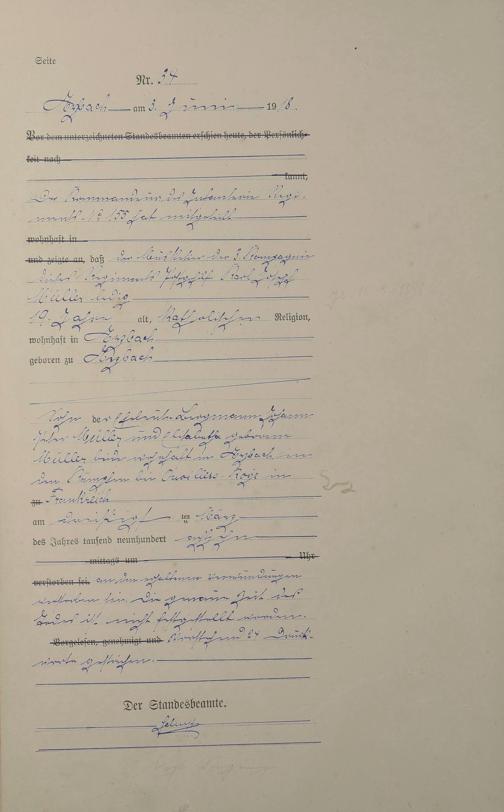 Seite
Nr. 34
am 3. Juni 1918.
Vor dem unterzeichneten Standesbeamten erschien heute, der Persönlich-
keit nach
kannt,
Der Kommandeur des Infanterie Regi-
ments No 155 hat mitgeteilt
wohnhaft in
und zeigte an, daß der Musketier der 3. Kompagnie
dieses Regiments Karl Joseph
Müller ledig
19 Jahre alt, katholischer Religion,
wohnhaft in
geboren zu
Sohn der Eheleute Bergmann Johann
Peter Müller und Elisabetha geborene
Müller beide wohnhaft in
den Kämpfen bei in
zu Frankreich
am ten März
des Jahres tausend neunhundert achtzehn
mittags um Uhr
verstorben sei, an den erhaltenen Verwundungen
verstorben sei. Die genaue Zeit des
Todes ist nicht festgestellt worden.
Vorgelesen, genehmigt und Vorstehend 24 Druck-
worte gestrichen.
Der Standesbeamte.